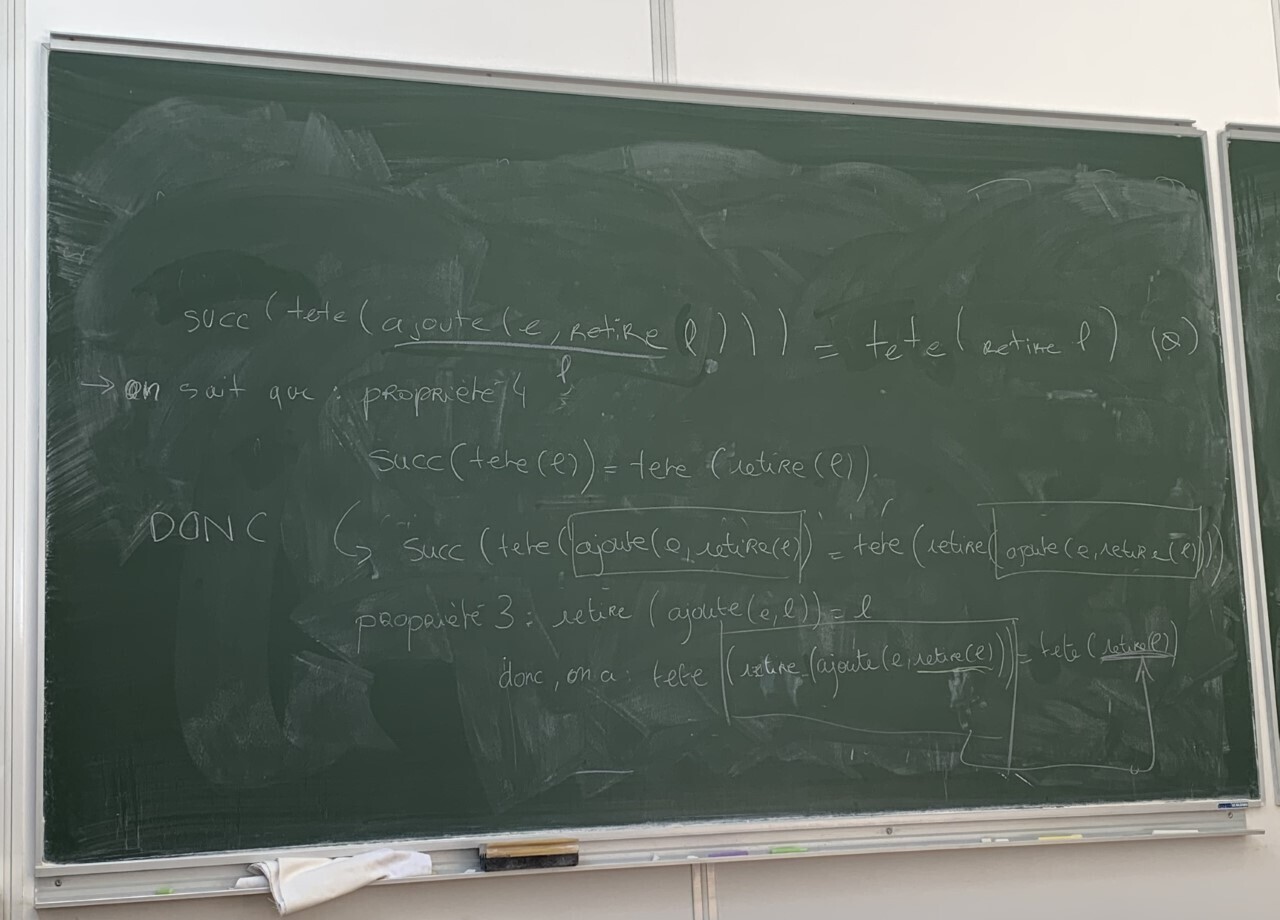 succ (tete (ajoute (e, retire l)))) = tete (retire l) (Q)
→ on sait que : propriété 4
l
succ (tete (l)) = tete (retire (l)).
DONC ↳ succ (tete (ajoute (e, retire (l)) = tete (retire (ajoute (e, retire (l)))
propriété 3 : retire (ajoute (e, l)) = l
donc, on a : tete (retire (ajoute (e, retire (l))) = tete (retire (l))